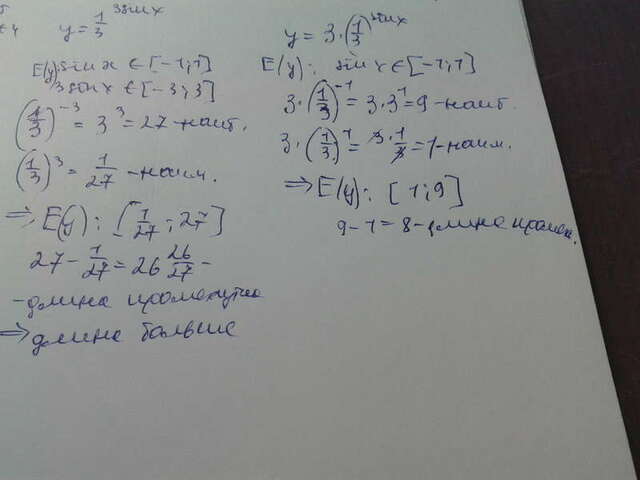 y = 1/3^3sinx
E(y): sin x ∈ [-1;1]
3sinx ∈ [-3;3]
(1/3)^-3 = 3^3 = 27 - наиб.
(1/3)^3 = 1/27 - наим.
⇒ E(y): [1/27; 27]
27 - 1/27 = 26 26/27 -
- длина промежутка
⇒ длина больше
y = 3·(1/3)^sinx
E(y): sin x ∈ [-1;1]
3·(1/3)^-1 = 3·3^1 = 9 - наиб.
3·(1/3)^1 = 3·1/3 = 1 - наим.
⇒ E(y): [1;9]
9 - 1 = 8 - длина промеж.